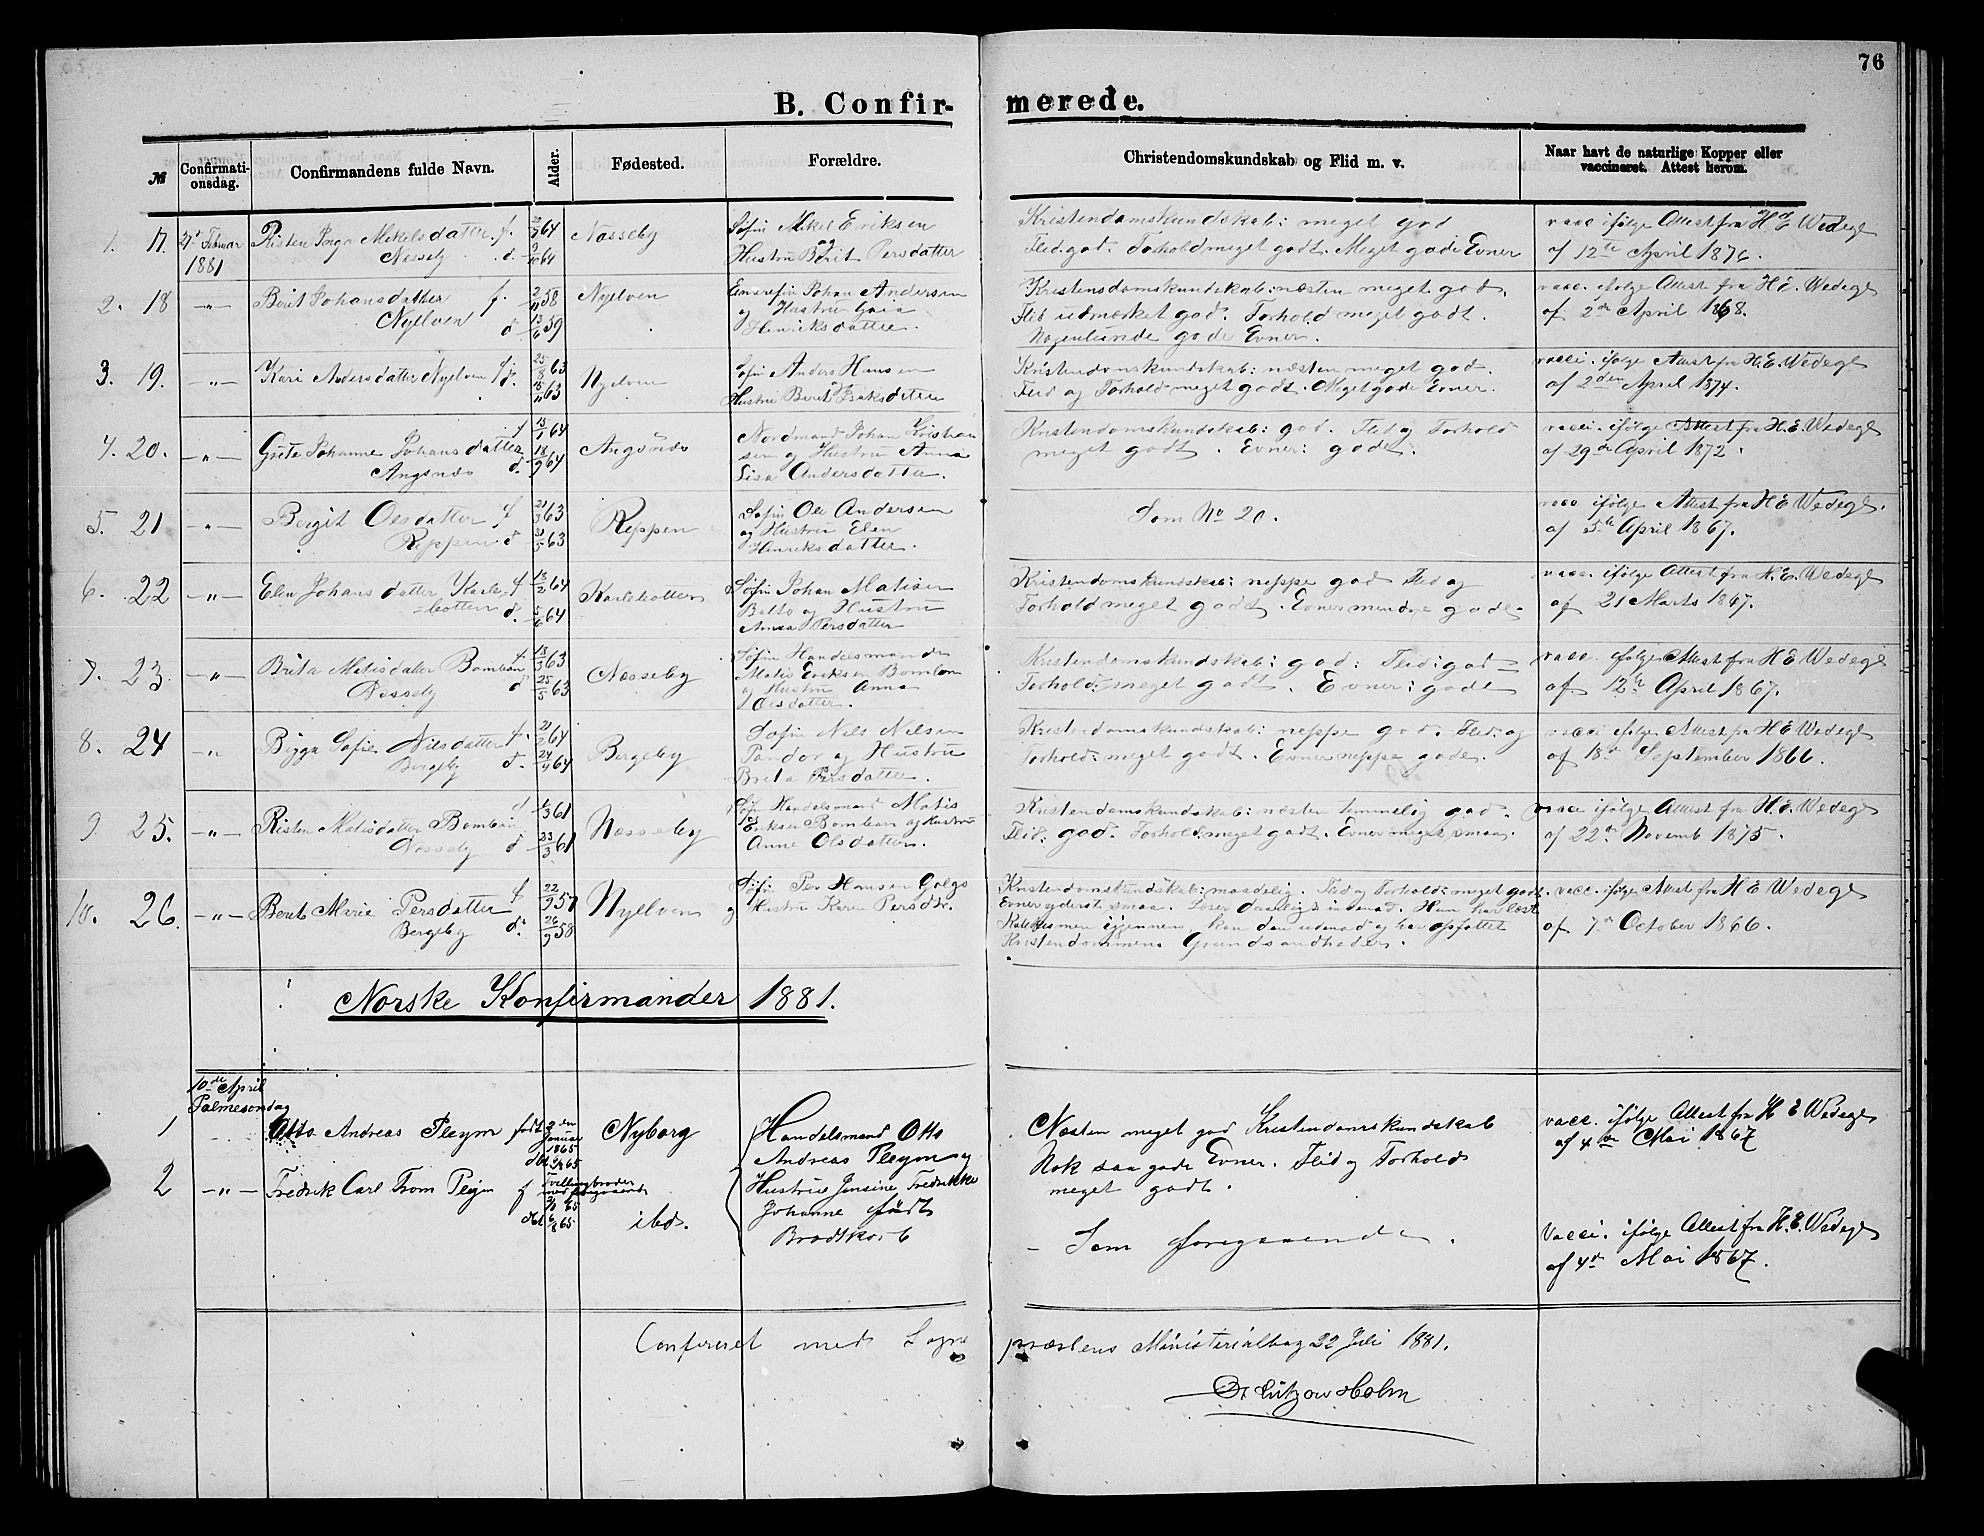 76
B. Confir- merede.
№
Confirmati-
onsdag.
Confirmandens fulde Navn.
Alder.
Fødested.
Forældre.
Christendomskundskab og Flid m. v.
Naar havt de naturlige Kopper eller
vaccineret. Attest herom.
1. 17. Februar
1881
Risten Inga Mikelsdatter f.
Nesseby d. 64
Næsseby
Søfin Mikel Eriksen
og
Hustru Berit Persdatter
Kristendomskundskab: meget god
Flid: god. Forhold meget godt. Meget gode Evner
vacc ifølge Attest fra H. E. Wedege
af 12te April 1876.
2. 18 -"- Berit Johansdatter f. 58
Nyelven d 13/6 59
Nyelven
Johan Andersen
og Hustru
Henriksdatter.
Kristendomskundskab: næsten meget god.
Flid udmærket god. Forhold meget godt.
Nogenlunde gode Evner.
vacc. ifølge Attest fra H. E. Wedege
af 2den April 1868.
3. 19. -"- Kari Andersdatter Nyelven f. 25/8 63
63
Nyelven
Søfin Anders Hansen
Hustru Berit Isaksdatter
Kristendomskundskab: næsten meget god.
Flid og Forhold meget godt. Meget gode Evner.
vacci. ifølge Attest fra H. E. Wedege
af 2den April 1874.
4. 20. -"- Grete Johanne Johansdatter f 64
Angsnæs d. 64
Angsnæs
Nordmand Johan Kristian
sen og Hustru Anna
Lisa Andersdatter.
Kristendomskundskab: god. Flid og Forhold
meget godt. Evner: gode.
vacci. ifølge Attest fra H. E. Wedege
af 29de April 1872.
5. 21 -"- Bergit Olsdatter f 63
Reppen d 63
Reppen
Søfin Ole Andersen
og Hustru Elen
Henriksdatter.
Som No 20.
vacc ifølge Attest fra H E Wedege.
af 5te April 1867.
6. 22 -"- Elen Johansdatter Karle- f 64
botten d. 5/6 64
Karlebotten
Søfin Johan Matisen
Balto og Hustru
Anna Persdatter
Kristendomskundskab: neppe god Flid og
Forhold meget godt. Evner mindre gode.
vacc. ifølge Attest fra H. E. Wedege
af 21 Marts 1867.
7. 23. -"- Brita Matisdatter Bomban f. 63
Nesseby d 25/5 63
Næsseby
Søfin Handelsmanden
Matis Eriksen Bomban
og Hustru Anna
Olsdatter.
Kristendomskundskab: god: Flid: god
Forhold: meget godt. Evner: gode
vacc. ifølge Attest fra H E Wedege
af 12te April 1867.
8. 24 -"- Bigga Sofie Nilsdatter f. 64
Bergeby d. 64
Bergeby
Søfin Nils Nilsen
Pandor og Hustru
Brita Persdatter.
Kristendomskundskab: neppe god. Flid: og
Forhold: meget godt. Evner neppe gode.
vacci ifølge Attest fra H E Wedege
af 18de September 1866.
9 25. -"- Risten Matisdatter Bomban 61
Nesseby d 23/3 61
Næsseby
Søfin Handelsmand Matis
Eriksen Bomban og Hustru
Anne Olsdatter.
Kristendomskundskab: næsten temmelig god.
Flid: god. Forhold: meget godt. Evner meget smaa.
vacc ifølge Attest fra H. E. Wedege
af 22de Novemb 1875.
10. 26. -"- Berit Marie Persdatter f 57
Bergeby d. 58
Nyelven
Søfin Per Hansen
og Hustru Karen Persdtr.
Kristendomskundskab: maadelig. Flid og Forhold: meget godt.
Evner yderst smaa. Læser daarligt indenad. Hun har læst
Katekismen igjennem, kan den udenad og har opfattet
Kristendommens Grundsandheder.
vacc. ifølge Attest fra H E Wedege
af 7de October 1866.
Norske Konfirmander 1881.
10de April
Palmesøndag
1 Otto Andreas Pleym født 2den
Januar
1865
Nyborg
Handelsmand Otto
Andreas Pleym og
Hustru Jensine Fredrikke
Johanne født
Brodtkorb
Næsten meget god Kristendomskundskab
Nok saa gode Evner. Flid og Forhold
meget godt.
vacc. ifølge Attest fra H E Wedege
af 4de Mai 1867
2 -"- Fredrik Carl From Pleym f Tvillingbroder
med foregaaende
65
ibd.
- Som foregaaende.
Vacci. ifølge Attest fra H. E. Wedege
af 4de Mai 1867.
Confereret med Sogne præstens Ministerialbog 22 Juli 1881.
Lützow Holm